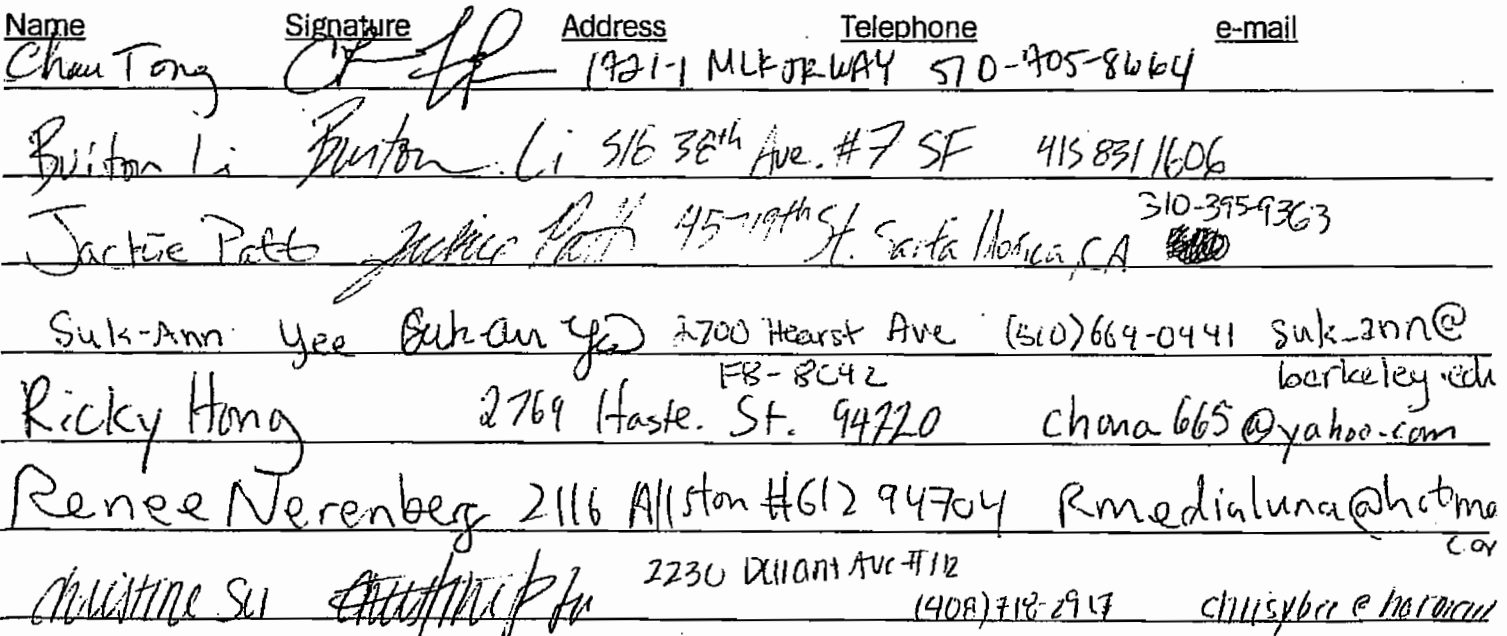 Name Signature Address Telephone e-mail
Chau Tong 1921-1 MLK JR WAY 510-705-8664
Buiton Li Buiton Li 516 38th Ave. #7 SF 415 831 1606
310-395-9363
Jackie Patt Jackie Patt 45-19th St. Santa Monica, CA
Suk-Ann Yee Suk-Ann Yee 2700 Hearst Ave (510)664-0441 suk_ann@
FB-8C42 berkeley.edu
Ricky Hong 2769 Haste. St. 94720 chona665@yahoo.com
Renee Nerenberg 2116 Allston #612 94704 Rmedialuna@hotma
.com
2230 Durant Ave #112
Christine Su (408)718-2917